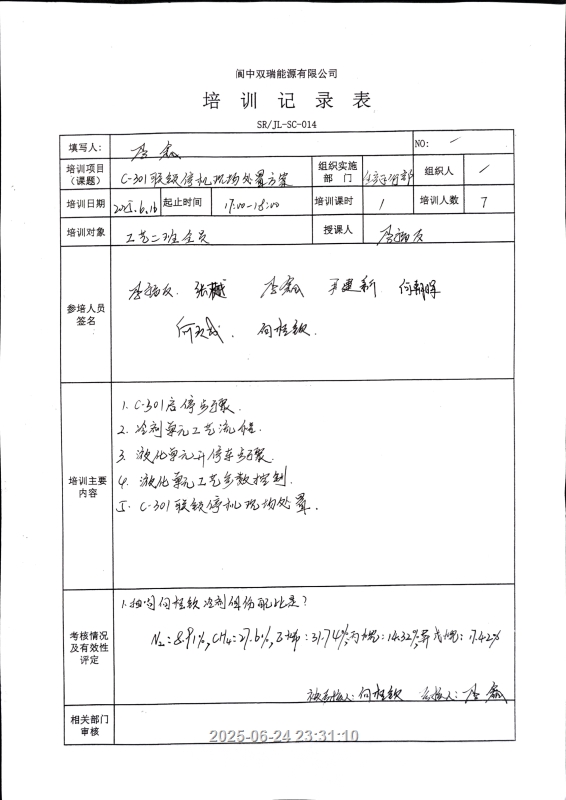 阆中双瑞能源有限公司
培训记录表
SR/JL-SC-014
填写人: 李鑫 NO: /
培训项目（课题） C-301联锁停机现场处置方案 组织实施部门 生产运行部 组织人 /
培训日期 2025.6.16 起止时间 17:00-18:00 培训课时 1 培训人数 7
培训对象 工艺二班全员 授课人
参培人员签名 张樾 李鑫 尹建新 何朝晖
何桂钦.
培训主要内容
1. C-301启停步骤.
2. 冷剂单元工艺流程.
3. 液化单元开停车步骤.
4. 液化单元工艺参数控制.
5. C-301联锁停机现场处置.
考核情况及有效性评定
1.提问何桂钦冷剂组份配比是?
N₂:8.91%,CH₄:27.6%,乙烯:31.74%,丙烷:14.32%,异戊烷:17.42%
被考核人:何桂钦 考核人:李鑫
相关部门审核
2025-06-24 23:31:10